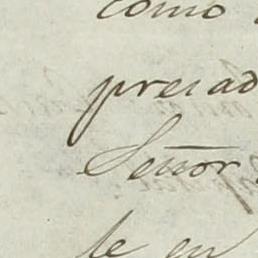 como
presad
Señor
le en